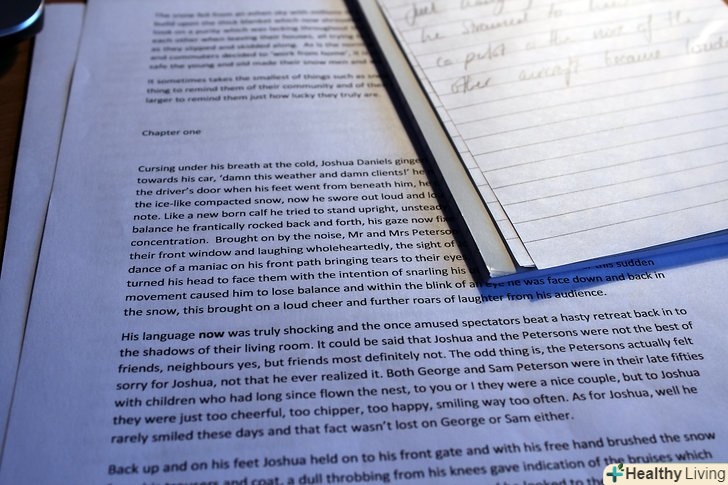 The snow fell from an ashen sky with
build upon the thick blanket which now
look on a purity which was lacking
each other when leaving their houses, all
as they slipped and skidded along. As is the
and commuters decided to 'work from home',
safe the young and old made their snow men and
It sometimes takes the smallest of things such as
thing to remind them of their community and of
larger to remind them just how lucky they truly are.
Chapter one
Cursing under his breath at the cold, Joshua Daniels
towards his car, 'damn this weather and damn clients!' he
the driver's door when his feet went from beneath him, he
the ice-like compacted snow, now he swore out loud and
note. Like a new born calf he tried to stand upright,
balance he frantically rocked back and forth, his gaze now
concentration. Brought on by the noise, Mr and Mrs
their front window and laughing wholeheartedly, the sight of
dance of a maniac on his front path bringing tears to their
turned his head to face them with the intention of snarling his sudden
movement caused him to lose balance and within the blink of an eye he was face down and back in
the snow, this brought on a loud cheer and further roars of laughter from his audience.
His language now was truly shocking and the once amused spectators beat a hasty retreat back in to
the shadows of their living room. It could be said that Joshua and the Petersons were not the best of
friends, neighbours yes, but friends most definitely not. The odd thing is, the Petersons actually felt
sorry for Joshua, not that he ever realized it. Both George and Sam Peterson were in their late fifties
with children who had long since flown the nest, to you or I they were a nice couple, but to Joshua
they were just too cheerful, too chipper, too happy, smiling way too often. As for Joshua, well he
rarely smiled these days and that fact wasn't lost on George or Sam either.
Back up and on his feet Joshua held on to his front gate and with his free hand brushed the snow
trousers and coat, a dull throbbing from his knees gave indication of the bruises which
he looked to the
he strained to
co pilot the noise of the
other aircraft became
Healthy Living